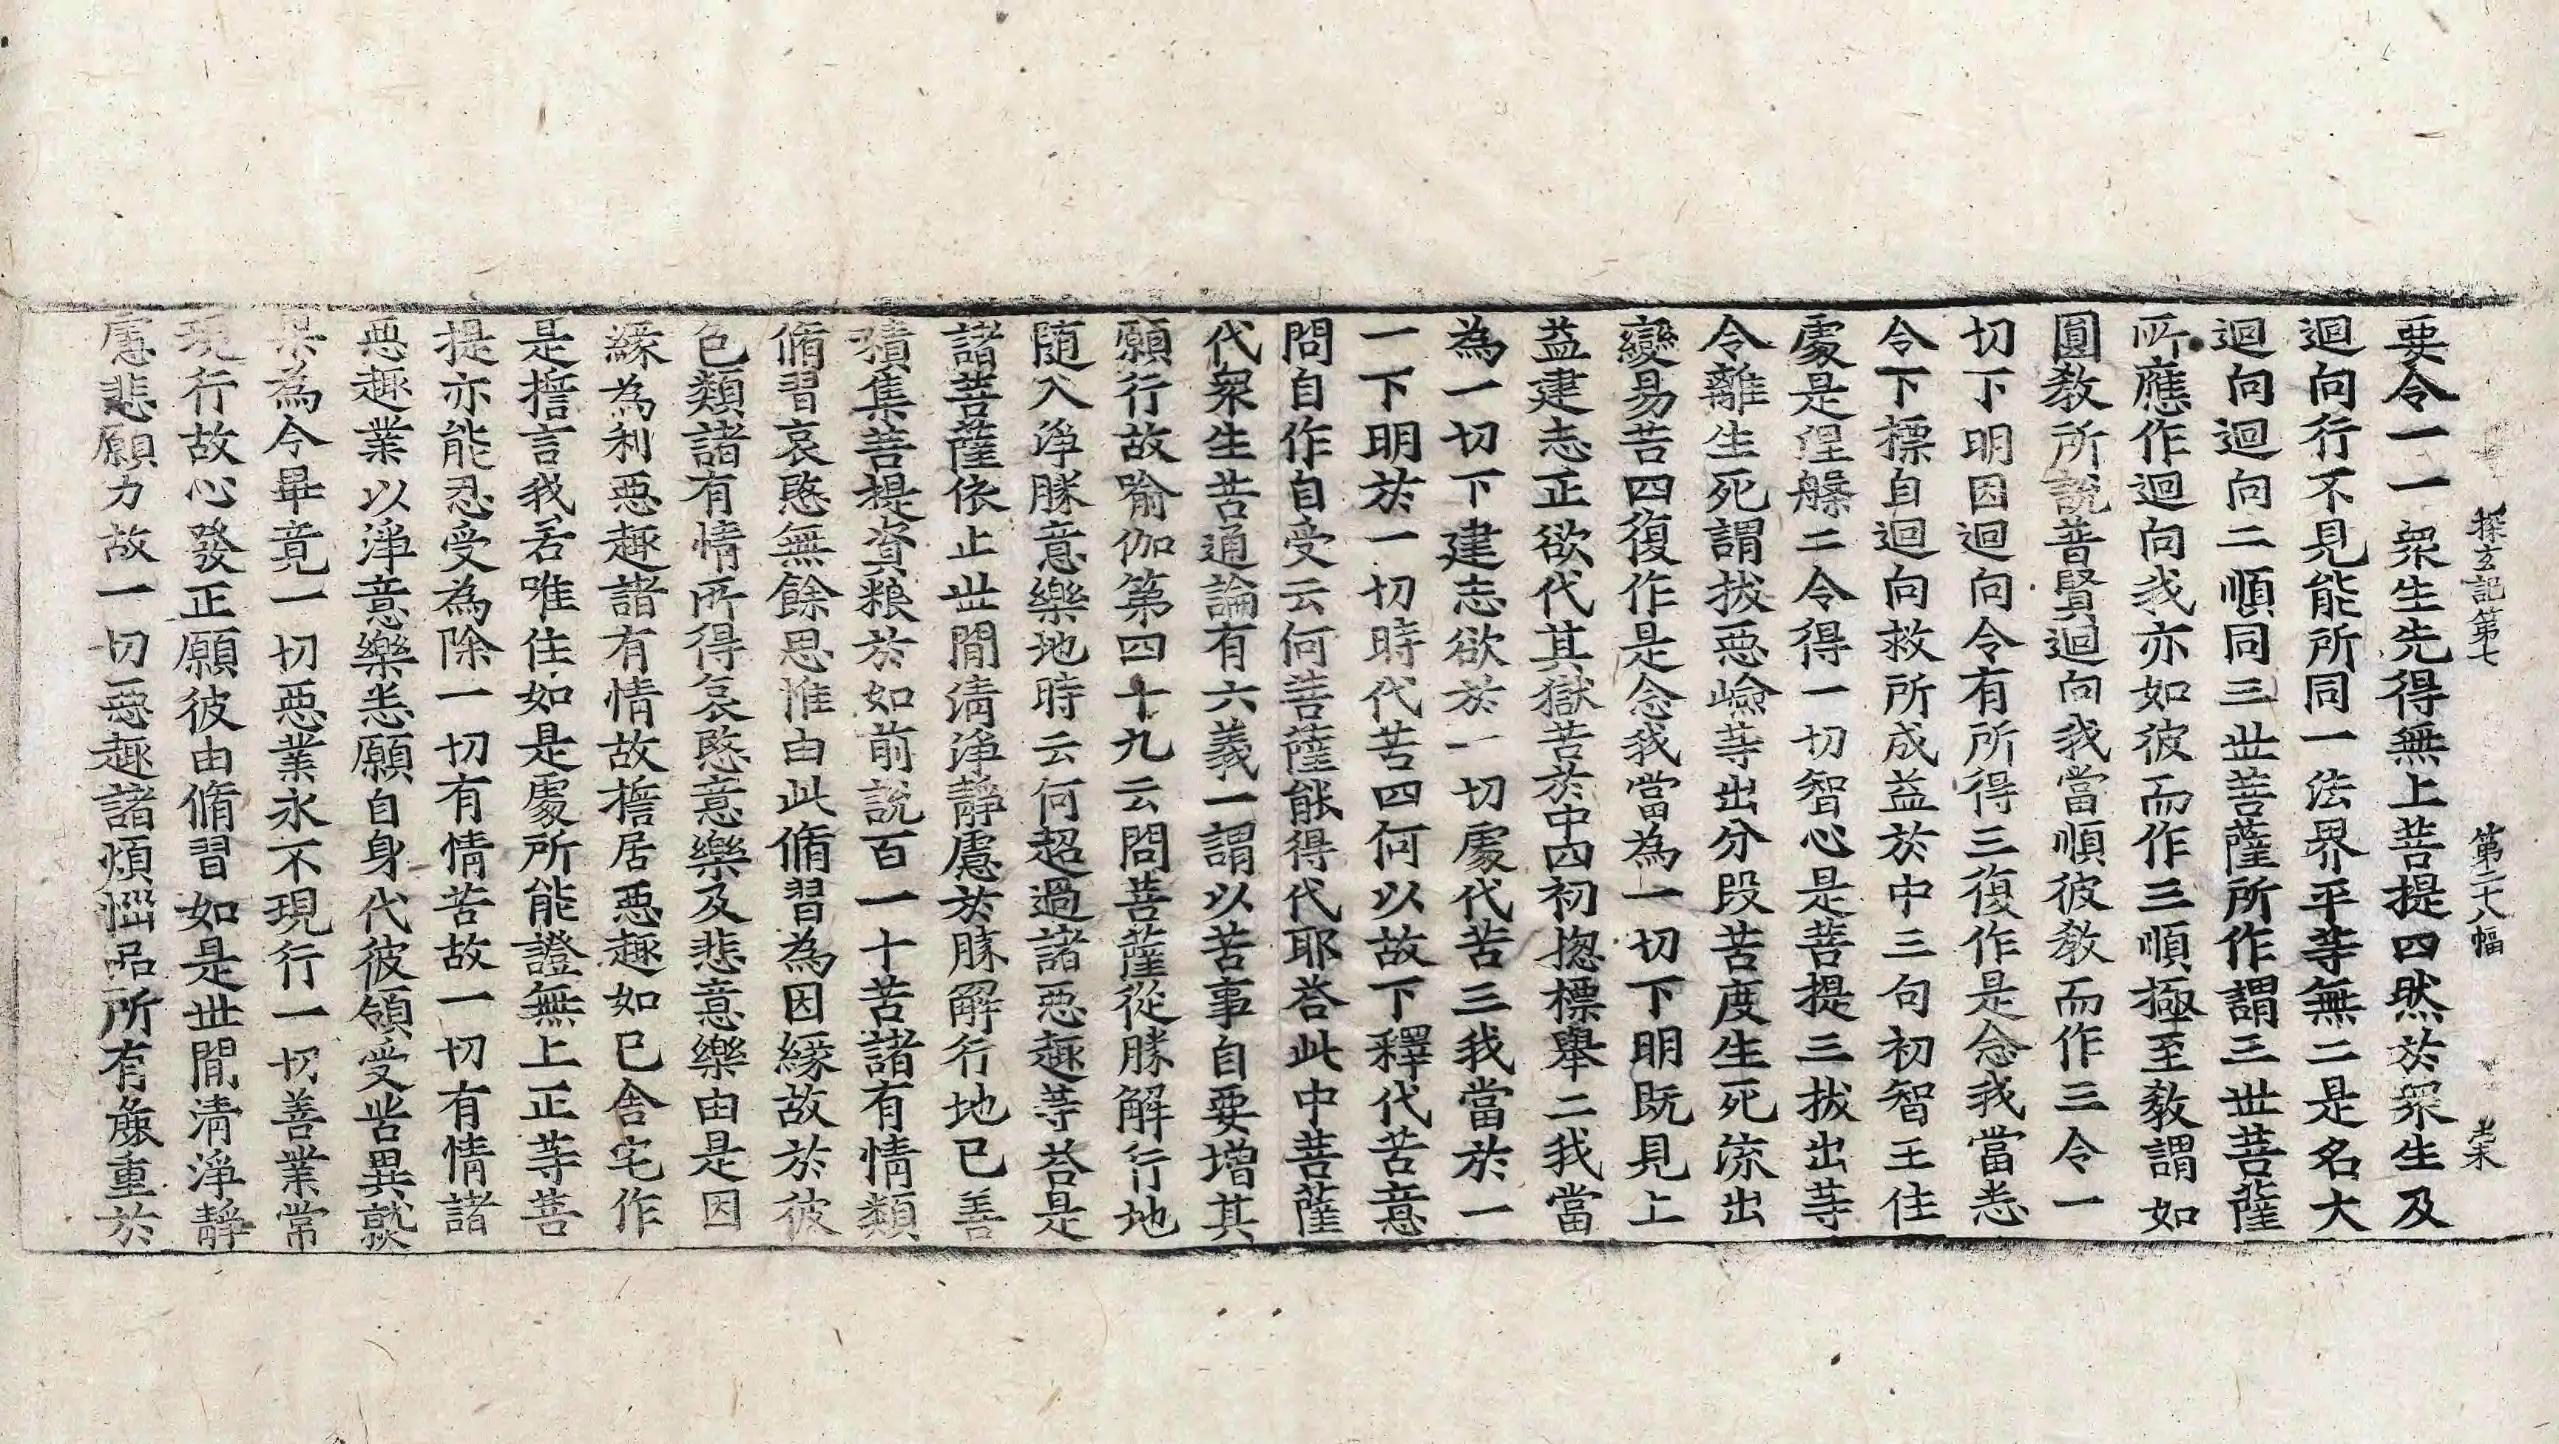 探玄記第七 第二十八幅 崇末
要令一一衆生先得無上菩提四然於衆生及
迴向行不見能所同一法界平等無二是名大
迴向迴向二順同三世菩薩所作謂三世菩薩
所應作迴向我亦如彼而作三順極至教謂如
圓教所說普賢迴向我當順彼教而作三令一
切下明因迴向令有所得三復作是念我當悉
令下摽自迴向救所成益於中三句初智王住
處是涅槃二令得一切智心是菩提三拔出等
令離生死謂拔惡嶮等出分段苦度生死流出
變易苦四復作是念我當為一切下明既見上
益建志正欲代其獄苦於中四初揔標舉二我當
為一切下建志欲於一切處代苦三我當於一
一下明於一切時代苦四何以故下釋代苦意
問自作自受云何菩薩能得代耶答此中菩薩
代衆生苦通論有六義一謂以苦事自要增其
願行故喻伽第四十九云問菩薩從勝解行地
随入淨勝意樂地時云何超過諸惡趣等答是
諸菩薩依止世間清淨靜慮於勝解行地已善
積集菩提資粮於如前說百一十苦諸有情類
脩習哀愍無餘思惟由此脩習為因緣故於彼
色類諸有情所得哀愍意樂及悲意樂由是因
緣為利惡趣諸有情故擔居惡趣如已舍宅作
是擔言我若唯住如是處所能證無上正等菩
提亦能忍受為除一切有情苦故一切有情諸
惡趣業以淨意樂悉願自身代彼領受苦異熟
果為令畢竟一切惡業永不現行一切善業常
現行故心發正願彼由脩習如是世間清淨靜
慮悲願力故一切惡趣諸煩惱品所有麁重於